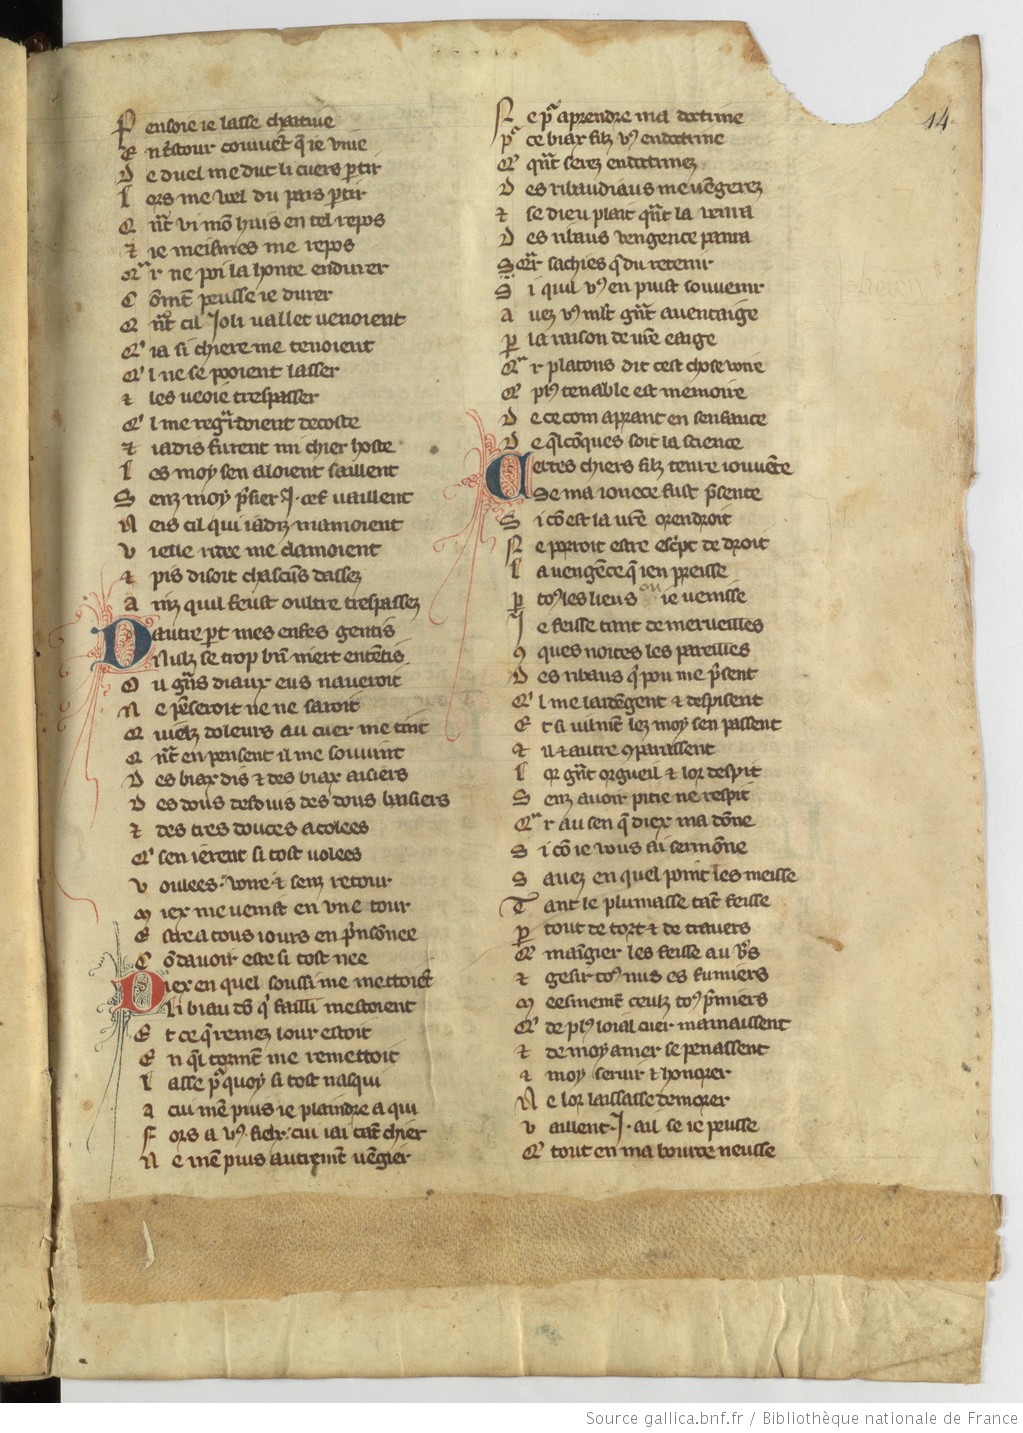 Pensoie ie lasse chaitiue
En destour couuent que ie viue
De duel me dut li cuers partir
Lors me vel du pais partir
Quant vi mon huis en tel repos
Et ie meismes me repos
Car ne poi la honte endurer
Coment peusse ie durer
Quant cil Joli vallet venoient
Qui ia si chiere me tenoient
Quil ne se pooient lasser
Et les veoie trespasser
Quil me regardoient de coste
Et iadis furent mi chier hoste
Les moy sen aloient saillent
Senz moy prisier .J. oef vaillent
Neis cil qui iadiz mamoient
Vielle ridee me clamoient
Et pis disoit chascuns dassez
Ainz quil feust oultre trespassez
Dautre part mes enfes gentis
Nulz se trop bien niert ententis
Ou grans diaux eus naueroit
Ne penseroit ne ne saroit
Quielz doleurs au cuer me tint
Quant en pensent il me souuint
Des biax dis et des biax aisiers
Des dous desduis des dous baisiers
Et des tres douces acolees
Qui sen ierent si tost volees
Volees. voire et senz retour
Miex me venist en vne tour
Estre a tous iours en prisonnee
Con dauoir este si tost nee
Diex en quel soussi me mettoient
Li biau don qui failli mestoient
Et ce que remez lour estoit
En quel torment me remettoit
Lasse pour quoy si tost nasqui
A cui men puis ie plaindre a qui
Fors a vous fielz. cui iai tant chier
Ne men puis autrement vengier
Ne par aprendre ma doctrine
Pour ce biax filz vous endoctrine
Que quant serez endoctrinez
Des ribaudiaus me vengerez
Et se dieu plait quant la venra
Des ribaus vengence panra
14
Si quil vous en puist souuenir
Auez vous mlt grant auentaige
Par la raison de vostre eaige
Car platons dit cest chose voire
Que plus tenable est memoire
De ce com aprant en senfance
De quelconques soit la science
Certes chiers filz tenre iouuente
Se ma ionece fust presente
Si com est la vostre orendroit
Ne porroit estre escript de droit
La vengence que ien preisse
Par tous les lieus ou ie venisse
Je feisse tant de merueilles
Conques noites les pareilles
Des ribaus qui pou me prisent
Quil me ladengent et despisent
Et si vilment lez moy sen passent
Et il et autre comparassent
Lor grant orgueil et lor despit
Senz auoir pitie ne respit
Car au sen que diex ma donne
Si com ie vous ai sermonne
Sauez en quel point les meisse
Tant le plumasse tant feisse
Par tout de tort et de trauers
Que mangier les feisse au vers
Et gesir tous nus es fumiers
Meesmement ceulz tous premiers
Que de plus loial cuer mamaissent
Et de moy amer se penassent
Et moy seruir et honorer
Ne lor laissasse demorer
Vaillent .J. ail se ie peusse
Que tout en ma bource neusse
Source gallica.bnf.fr / Bibliothèque nationale de France